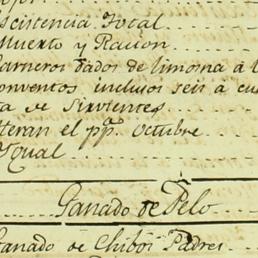 Existencia Total
Muerto y Racion
Carneros dados de limosna à l
onventos incluios seis a cu
ta de Sirvientes
teran el pp. Octubre
Ygual
Ganado de Pelo
Ganado de Chibos Padres